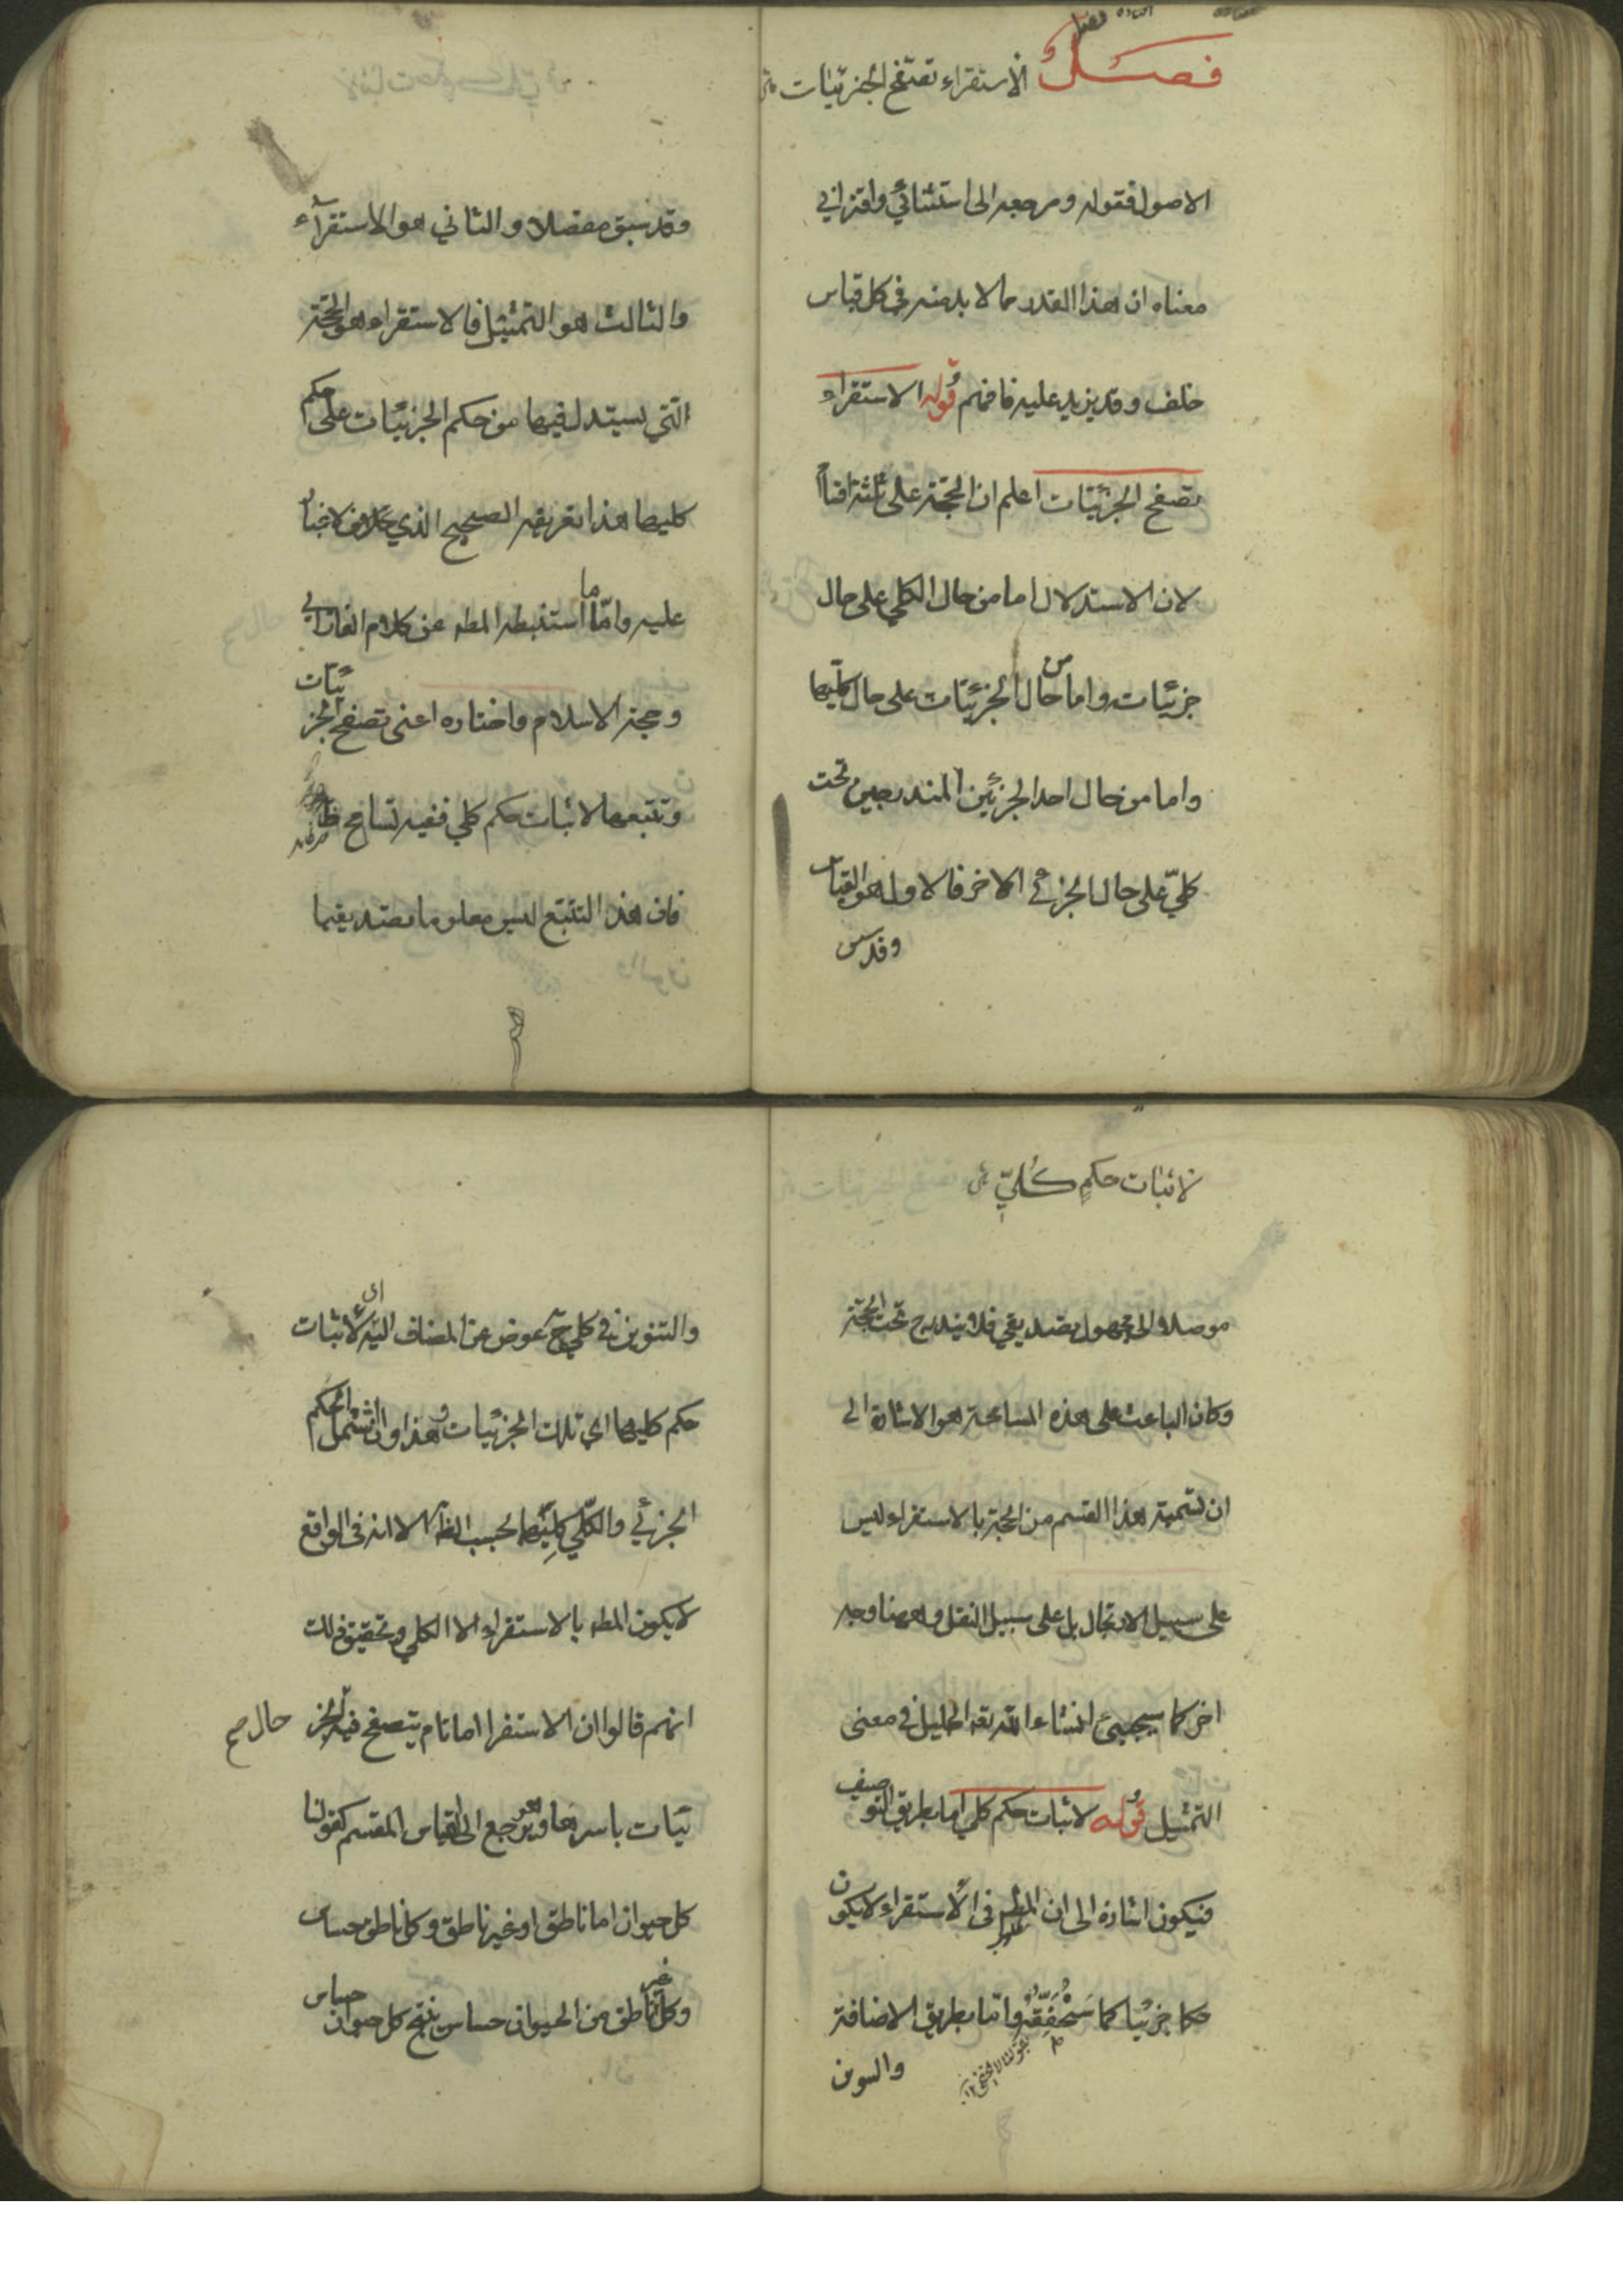 فصل الاستقراء تصفح الجزئيات
الاصول فقوله ومرجعه الى استثنائي واقتراني
معناه ان هذا القدر مما لا بد منه في كل قياس
خلف وقد يزيد عليه فافهم قوله الاستقراء
تصفح الجزئيات اعلم ان الحجة على ثلثة اقسام
لان الاستدلال اما من حال الكلي على حال
جزئيات واما من حال الجزئيات على حال كليها
واما من حال احد الجزئين المندرجين تحت
كلي على حال الجزئي الاخر فالاول هو القياس
وقد سبق
وقد سبق مفصلا والثاني هو الاستقراء
والثالث هو التمثيل فالاستقراء هو الحجة
التي يستدل فيها من حكم الجزئيات على حكم
كليها هذا تعريفه الصحيح الذي لا
عليه واما ما استنبطه المطه عن كلام الفارابي
وحجة الاسلام واختاره اعنى تصفح الجزئيات
وتتبعها لاثبات حكم كلي ففيه تسامح ظ
فان هذا التتبع ليس معلوما تصديقيا
لاثبات حكم كلي
موصلا الى مجهول تصديقي فلا يندرج تحت الحجة
وكان الباعث على هذه المسامحة هو الاشارة الى
ان تسمية هذا القسم من الحجة بالاستقراء ليس
على سبيل الارتجال بل على سبيل النقل وههنا وجه
اخر كما سيجيئ انشاء الله تعه الجليل في معنى
التمثيل قوله لاثبات حكم كلي اما بطريق التوصيف
فيكون اشارة الى ان المطه في الاستقراء لا يكون
حكما جزئيا كما سنحققه واما بطريق الاضافة
والتنوين
والتنوين في كلي ح عوض عن المضاف اليه اى لاثبات
حكم كليها اي تلك الجزئيات وهذا وان اشتمل الحكم
الجزئي والكلي كليهما بحسب الظ الا انه في الواقع
لا يكون المطه بالاستقراء الا الكلي وتحقيق ذلك
انهم قالوا ان الاستقرا اما تام يتصفح فيه حال الجز صح
ئيات باسرها وهو يرجع الى القياس المقسم كقولنا
كل حيوان اما ناطق او غير ناطق وكل ناطق حساس
وكل غير ناطق من الحيوان حساس ينتج كل حيوان حساس